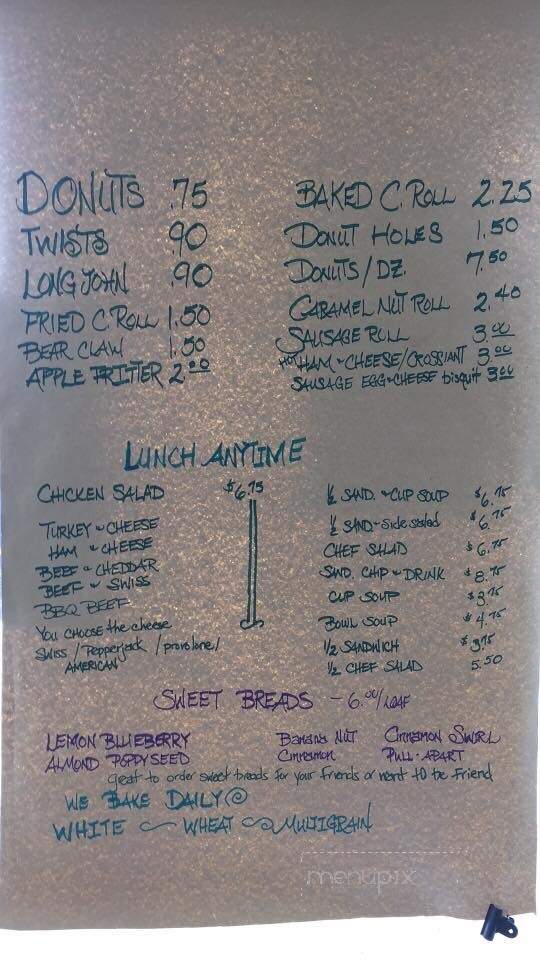 DONUTS .75
TWISTS .90
LONG JOHN .90
FRIED C. ROLL 1.50
BEAR CLAW 1.50
APPLE FRITTER 2.00
BAKED C. ROLL 2.25
DONUT HOLES 1.50
DONUTS/DZ. 7.50
CARAMEL NUT ROLL 2.40
SAUSAGE ROLL 3.00
HOT HAM & CHEESE/CROSSIANT 3.00
SAUSAGE EGG & CHEESE bisquit 3.00
LUNCH ANYTIME
CHICKEN SALAD $6.75
TURKEY & CHEESE
HAM & CHEESE
BEEF & CHEDDAR
BEEF & SWISS
BBQ BEEF
You CHOOSE the cheese
SWISS / Pepperjack / provolone /
AMERICAN
1/2 SAND. & CUP SOUP $6.75
1/2 SAND & side salad $6.75
CHEF SALAD $6.75
SAND. CHIP & DRINK $8.75
CUP SOUP $3.75
BOWL SOUP $4.75
1/2 SANDWICH $3.75
1/2 CHEF SALAD 5.50
SWEET BREADS - 6.00/LOAF
LEMON BLUEBERRY
ALMOND POPPYSEED
Banana NUT
Cinnamon
Cinnamon SWIRL
PULL-APART
great to order sweet breads for your friends or want to be friend
WE BAKE DAILY
WHITE ~ WHEAT ~ MULTIGRAIN
menupix